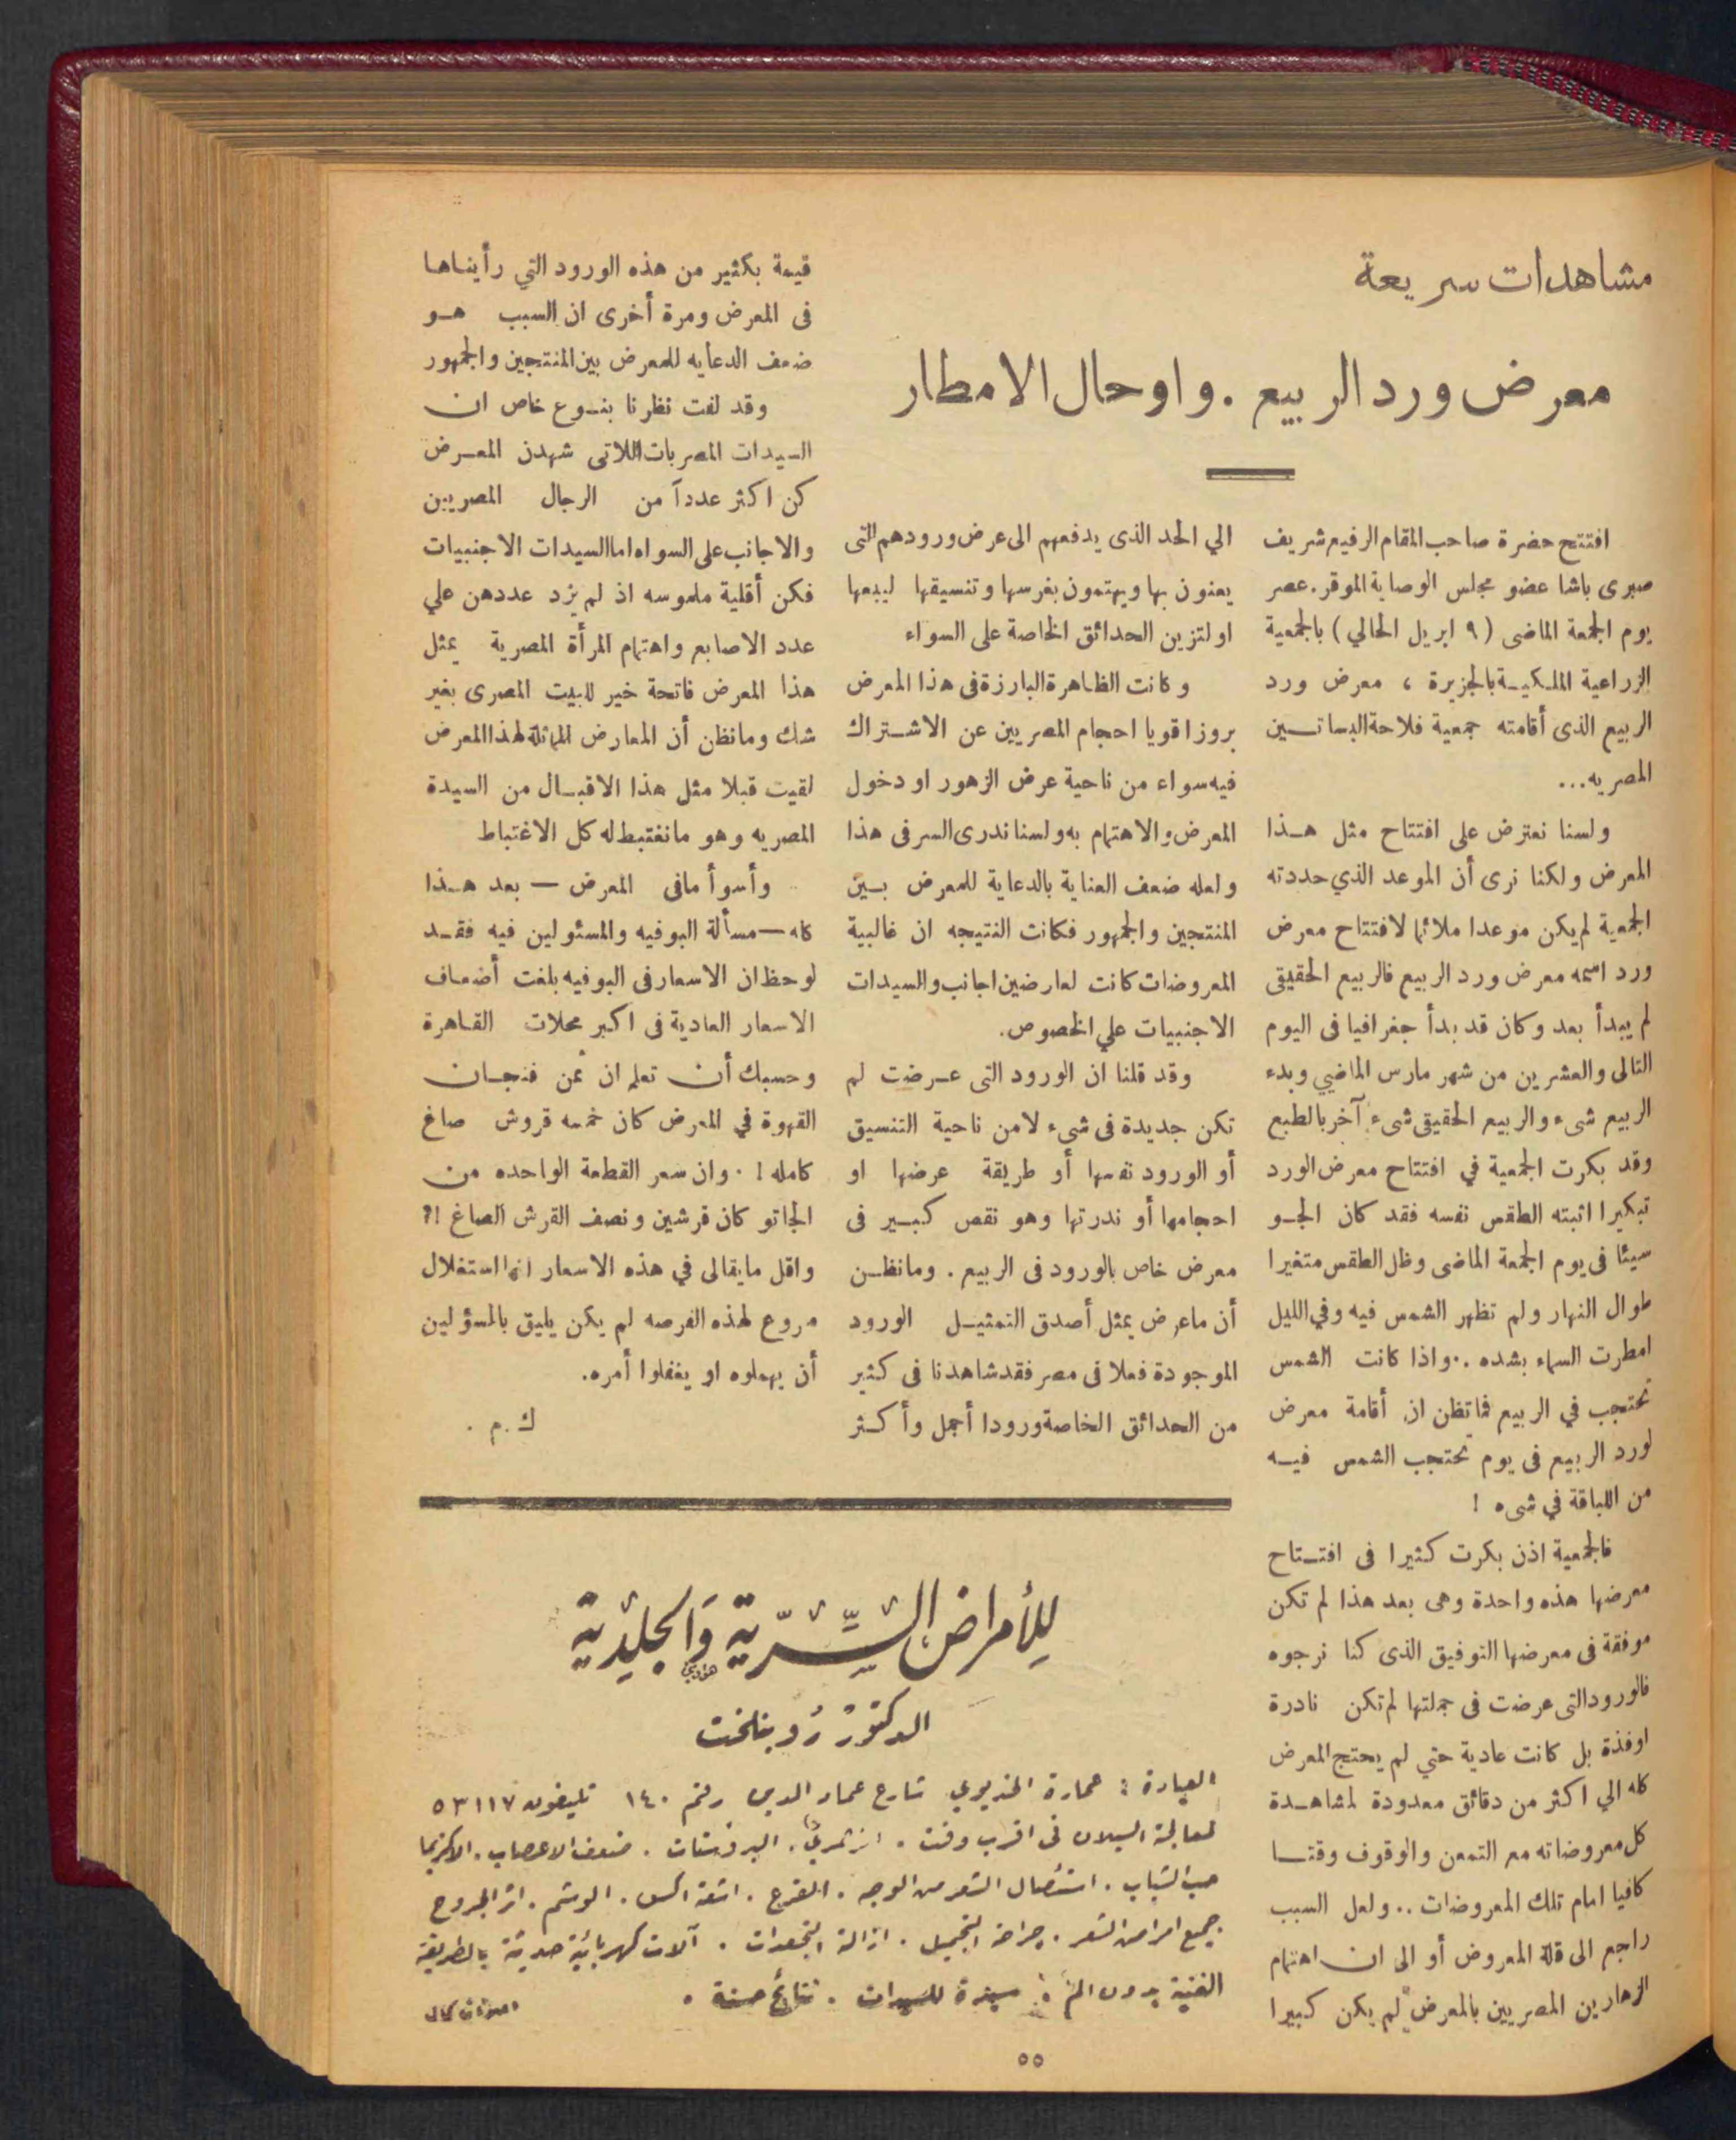 مشاهدات سريعة
معرض ورد الربيع . واوحال الامطار
افتتح حضرة صاحب المقام الرفيع شريف
صبرى باشا عضو مجلس الوصاية الموقر . عصر
يوم الجمعة الماضى ( ٩ ابريل الحالي ) بالجمعية
الزراعية الملكية بالجزيرة ، معرض ورد
الربيع الذى أقامته جمعية فلاحة البساتين
المصريه...
ولسنا نعترض على افتتاح مثل هذا
المعرض ولكنا نرى أن الموعد الذي حددته
الجمعية لم يكن موعدا ملائما لافتتاح معرض
ورد اسمه معرض ورد الربيع فالربيع الحقيقى
لم يبدأ بعد وكان قد بدأ جغرافيا فى اليوم
التالى والعشرين من شهر مارس الماضي وبدء
الربيع شىء والربيع الحقيقى شىء آخر بالطبع
وقد بكرت الجمعية في افتتاح معرض الورد
تبكيرا اثبته الطقس نفسه فقد كان الجو
سيئا فى يوم الجمعة الماضى وظل الطقس متغيرا
طوال النهار ولم تظهر الشمس فيه وفي الليل
امطرت السماء بشده .. واذا كانت الشمس
تحتجب في الربيع فما تظن ان أقامة معرض
لورد الربيع فى يوم تحتجب الشمس فيه
من اللباقة في شىء !
فالجمعية اذن بكرت كثيرا فى افتتاح
معرضها هذه واحدة وهى بعد هذا لم تكن
موفقة فى معرضها التوفيق الذى كنا نرجوه
فالورود التى عرضت فى جملتها لم تكن نادرة
اوفذة بل كانت عادية حتي لم يحتج المعرض
كله الي اكثر من دقائق معدودة لمشاهدة
كل معروضاته مع التمعن والوقوف وقتا
كافيا امام تلك المعروضات .. ولعل السبب
راجع الى قلة المعروض أو الى ان اهتمام
الزهارين المصريين بالمعرض لم يكن كبيرا
الي الحد الذى يدفعهم الى عرض ورودهم التى
يعنون بها ويهتمون بغرسها وتنسيقها ليبعها
او لتزين الحدائق الخاصة على السواء
وكانت الظاهرة البارزة فى هذا المعرض
بروزا قويا احجام المصريين عن الاشتراك
فيه سواء من ناحية عرض الزهور او دخول
المعرض والاهتمام به ولسنا ندرى السر فى هذا
ولعله ضعف العناية بالدعاية للمعرض بين
المنتجين والجمهور فكانت النتيجه ان غالبية
المعروضات كانت لعارضين اجانب والسيدات
الاجنبيات علي الخصوص.
وقد قلنا ان الورود التى عرضت لم
تكن جديدة فى شىء لامن ناحية التنسيق
أو الورود نفسها أو طريقة عرضها او
احجامها أو ندرتها وهو نقص كبير فى
معرض خاص بالورود فى الربيع . ومانظن
أن ماعرض يمثل أصدق التمثيل الورود
الموجودة فعلا فى مصر فقد شاهدنا فى كثير
من الحدائق الخاصة ورودا أجمل وأكثر
قيمة بكثير من هذه الورود التي رأيناها
فى المعرض ومرة أخرى ان السبب هو
ضعف الدعايه للمعرض بين المنتجين والجمهور
وقد لفت نظرنا بنوع خاص ان
السيدات المصريات اللاتى شهدن المعرض
كن اكثر عدداً من الرجال المصريين
والاجانب على السواء اما السيدات الاجنبيات
فكن أقلية ملموسه اذ لم يزد عددهن علي
عدد الاصابع واهتمام المرأة المصرية يمثل
هذا المعرض فاتحة خير للبيت المصرى بغير
شك ومانظن أن المعارض المماثلة لهذا المعرض
لقيت قبلا مثل هذا الاقبال من السيدة
المصريه وهو مانغتبط له كل الاغتباط
وأسوأ مافى المعرض — بعد هذا
كله — مسألة البوفيه والمسئولين فيه فقد
لوحظ ان الاسعار فى البوفيه بلغت أضعاف
الاسعار العادية فى اكبر محلات القاهرة
وحسبك أن تعلم ان ثمن فنجان
القهوة في المعرض كان خمسه قروش صاغ
كامله ! . وان سعر القطعة الواحده من
الجاتو كان قرشين ونصف القرش الصاغ !؟
واقل مايقالى في هذه الاسعار انها استغلال
مروع لهذه الفرصه لم يكن يليق بالمسؤلين
أن يهملوه او يغفلوا أمره.
ك . م .
للأمراض السِّرّية وَالجلِدية
الدكتور روبنلخت
العيادة : عمارة الخديوي شارع عماد الدين رقم ١٤٠ تليفون ٥٣١١٧
لمعالجة السيلان فى اقرب وقت . الزهري . البروستات . ضعف الاعصاب . الاكزيما
حب الشباب . استئصال الشعر من الوجه . القرع . اشعة اكس . الوشم . اثر الجروح
جميع امراض الشعر . جراحة التجميل . ازالة التجعدات . آلات كهربائية حديثة بالطريقة
الفنية بدون الم . سيدة للسيدات . نتائج حسنة .
٥٥